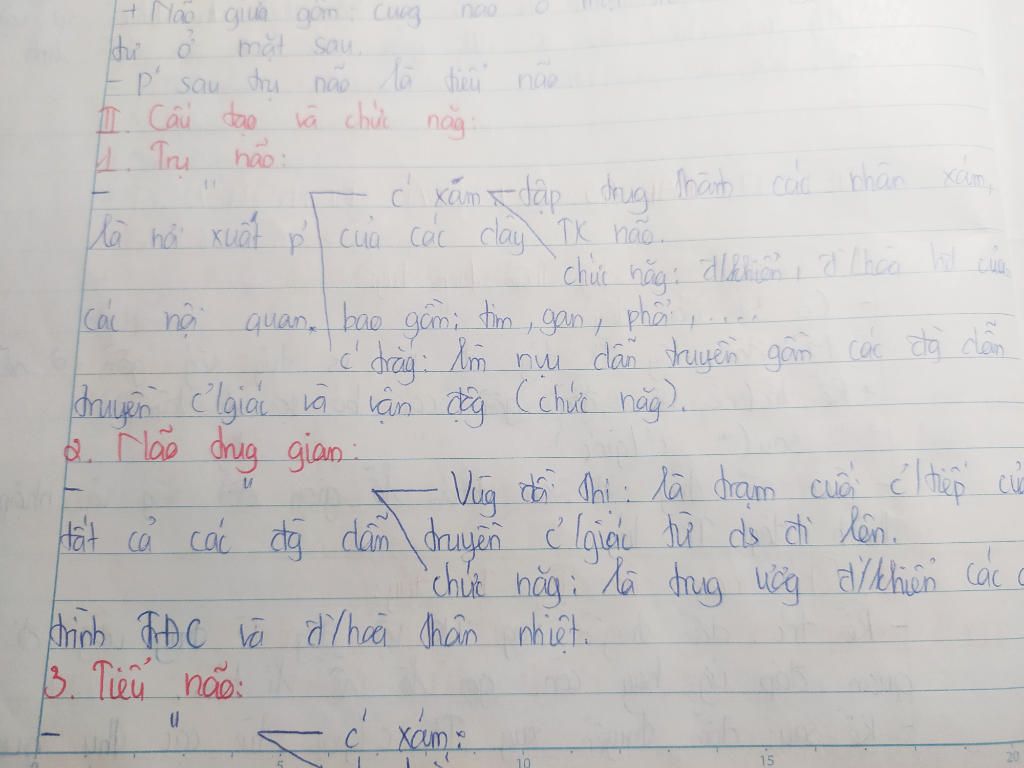 + Não giữa gồm: cuog não ở mặt
tư ở mặt sau.
- P' sau trụ não là tiểu não
II. Cấu tạo và chức năg:
1. Trụ não:
- " c' xám tập trug thành các nhân xám,
là nơi xuất p' của các dây TK não.
chức năg: đ/khiển, đ/hoà hđ của
các nội quan. bao gồm: tim, gan, phổi, ....
c' trắg: lm nvụ dẫn truyền gồm các đg dẫn
truyền c'/giác và vận độg (chức năg).
2. Não trug gian:
- " Vùg đồi thị: là trạm cuối c' tiếp củ
tất cả các đg dẫn truyền c'/giác từ ds đi lên.
chức năg: là trug ươg đ'/khiển các
trình TĐC và đ'/hoà thân nhiệt.
3. Tiểu não:
- " c' xám:
5 10 15 20